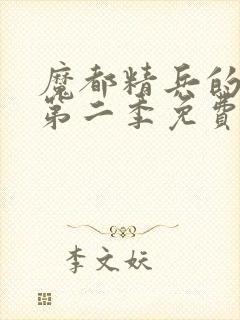 魔都精兵的
第二季免費
李文妖